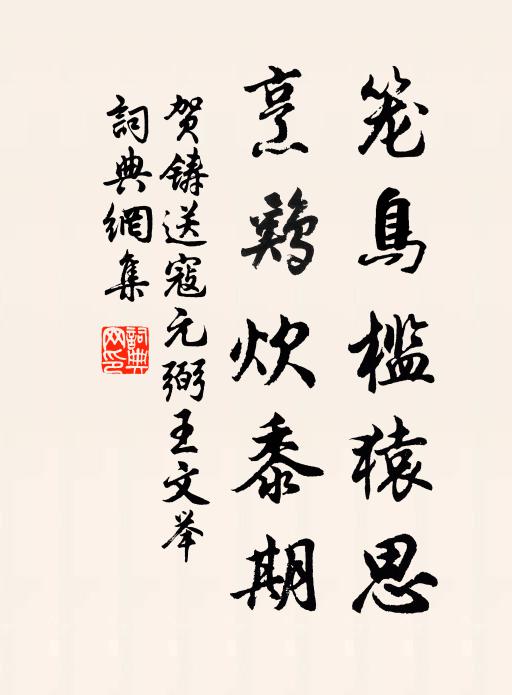 笼鳥檻猿思
烹鷄炊黍期
贺鑄送寇元弼王文举
詞典網集
詞典网印